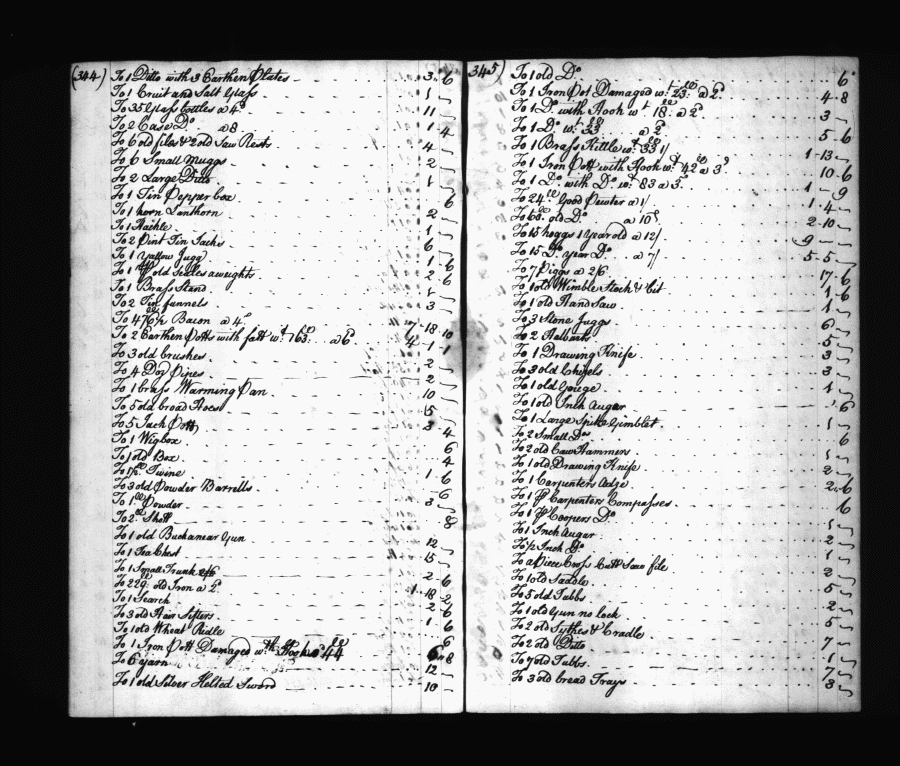 (344)
To 1 Ditto with 3 Earthen Plates 3 . 6
To 1 Cruit and Salt Glass 1 -
To 35 Glass bottles a 4d 11 -
To 2 Case Do a 8 1 . 4
To 6 old files & 2 old Saw Rests 4 -
To 6 Small Muggs 2 -
To 2 Large Ditto 1 -
To 1 Tin Pepper box 6
To 1 horn Lanthorn 2 -
To 1 Hackle 1 -
To 2 Pint Tin Jacks 6 -
To 1 Yallow Jugg 1 . 6
To 1 pr old Scales & weights 2 . 6
To 1 Brass Stand 1 -
To 2 Tin funnels 3 -
To 476½ Bacon a 4d 7 . 18 . 10
To 2 Earthen Potts with fatt wt 163 a 6d 4 . 1 . 1
To 3 old brushes 2 -
To 4 Doz Pipes 2 -
To 1 brass Warming Pan 10 -
To 5 old broad Hoes 15 -
To 5 Jack Potts 3 . 4
To 1 Wigbox 6
To 1 old Box 4
To Twine 1 . 6
To 3 old Powder Barrells 6
To 1 lb Powder 3 -
To 2 lb Shott 8
To 1 old Buchanear Gun 12 -
To 1 Tea Chest 15 -
To 1 Small Trunk 2/6 2 . 6
To 229 lb old Iron a 2d 1 . 18 . 2
To 1 Search 2 . 6
To 3 old Hair Sifters 1 . 6
To 1 old Wheat Ridle 6
To 1 Iron Pott Damaged wth Hooks 44 6 . 8
To 6 yarn 12 -
To 1 old Silver Helted Sword 10 -
345)
To 1 old Do 6
To 1 Iron Pot Damaged wt 23 lb a 2d 4 . 8
To 1 Do with Hook wt 18 lb a 2d 3 -
To 1 Do wt 33 lb a 2d 5 . 6
To 1 Brass Kittle wt 33 lb 1/ 1 . 13 -
To 1 Iron Pott with Hook wt 42 lb a 3d 10 . 6
To 1 Do with Do wt 83 a 3d 1 - 9
To 24 lb Good Pewter a 1/ 1 . 4 -
To 60 lb old Do a 10d 2 . 10 -
To 15 hoggs 1 year old a 12/ 9 -
To 15 Do year Do a 7/ 5 . 5 -
To 7 Piggs a 2/6 17 . 6
To 1 old Wimble Stock & bit 1 . 6
To 1 old Hand Saw 1 -
To 3 Stone Juggs 6 -
To 2 Halbarts 5 -
To 1 Drawing Knife 3 -
To 3 old Chizels 3 -
To 1 old Gouge 1 -
To 1 old Inch Auger 1 . 6
To 1 Large Spike Gimblet 1 -
To 2 Small Do 6
To 2 old Claw Hammers 1 -
To 1 old Drawing Knife 2 -
To 1 Carpenters Adge 2 . 6
To 1 pr Carpenters Compasses 6
To 1 pr Coopers Do
To 1 Inch Augar 1 -
To ½ Inch Do 2 -
To a Piece Cross Cutt Saw file 1 -
To 1 old Saddle 2 -
To 5 old Tubbs 5 -
To 1 old Gun no lock 2 -
To 2 old Sythes & Cradles 5 -
To 2 old Ditto 7 -
To 7 old Tubbs 1 -
To 3 old bread Trays 3 -